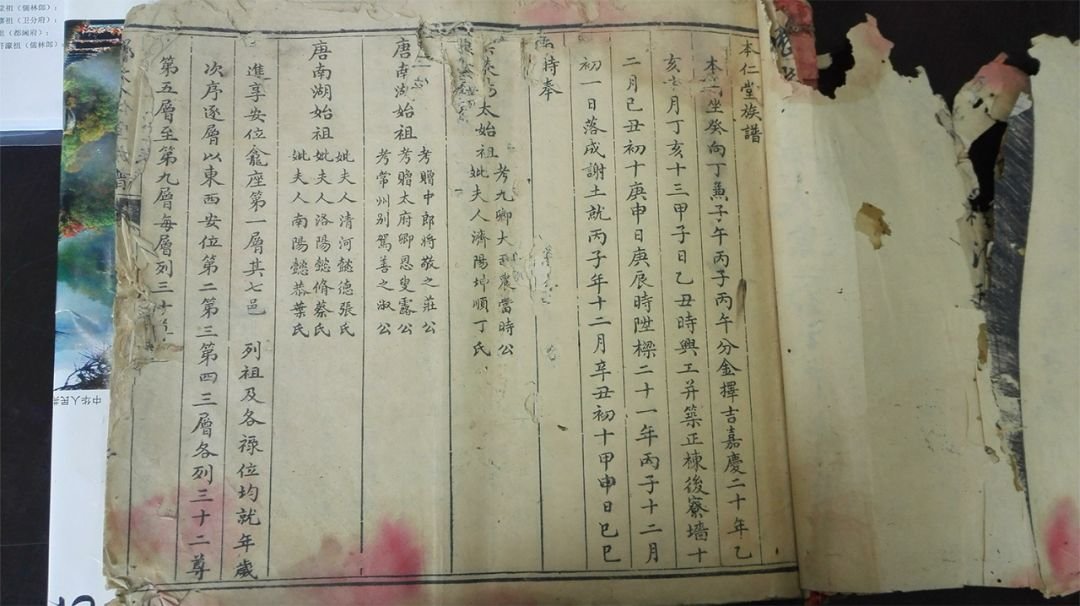 本仁堂族譜
本 坐癸向丁兼子午丙子丙午分金擇吉嘉慶二十年乙
亥 月丁亥十三甲子日乙丑時興工并築正棟後寮墻十
二月己丑初十庚申日庚辰時陞樑二十一年丙子十二月
初一日落成謝土就丙子年十二月辛丑初十甲申日巳巳
持奉
太始祖
考九卿大司農當時公
妣夫人濟陽坤順丁氏
唐南湖始祖
考贈中郎將敬之莊公
考贈太府卿恩叟露公
考常州別駕善之淑公
唐南湖始祖
妣夫人清河懿德張氏
妣夫人洛陽懿脩蔡氏
妣夫人南陽懿恭葉氏
進享安位龕座第一層其七邑 列祖及各祿位均就年歲
次序逐層以東西安位第二第三第四三層各列三十二尊
第五層至第九層每層列三十
祖（儒林郎）；
祖（卫分府）；
（都阃府）；
祖（儒林郎）
中华人民